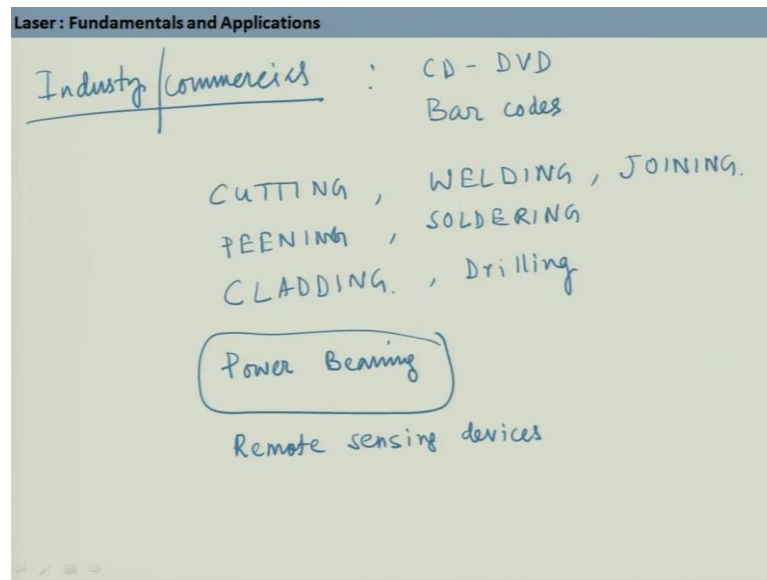 Laser : Fundamentals and Applications
Industry / commercics : CD - DVD
Bar codes
CUTTING , WELDING , JOINING.
PEENING , SOLDERING
CLADDING. , Drilling
Power Beaming
Remote sensing devices